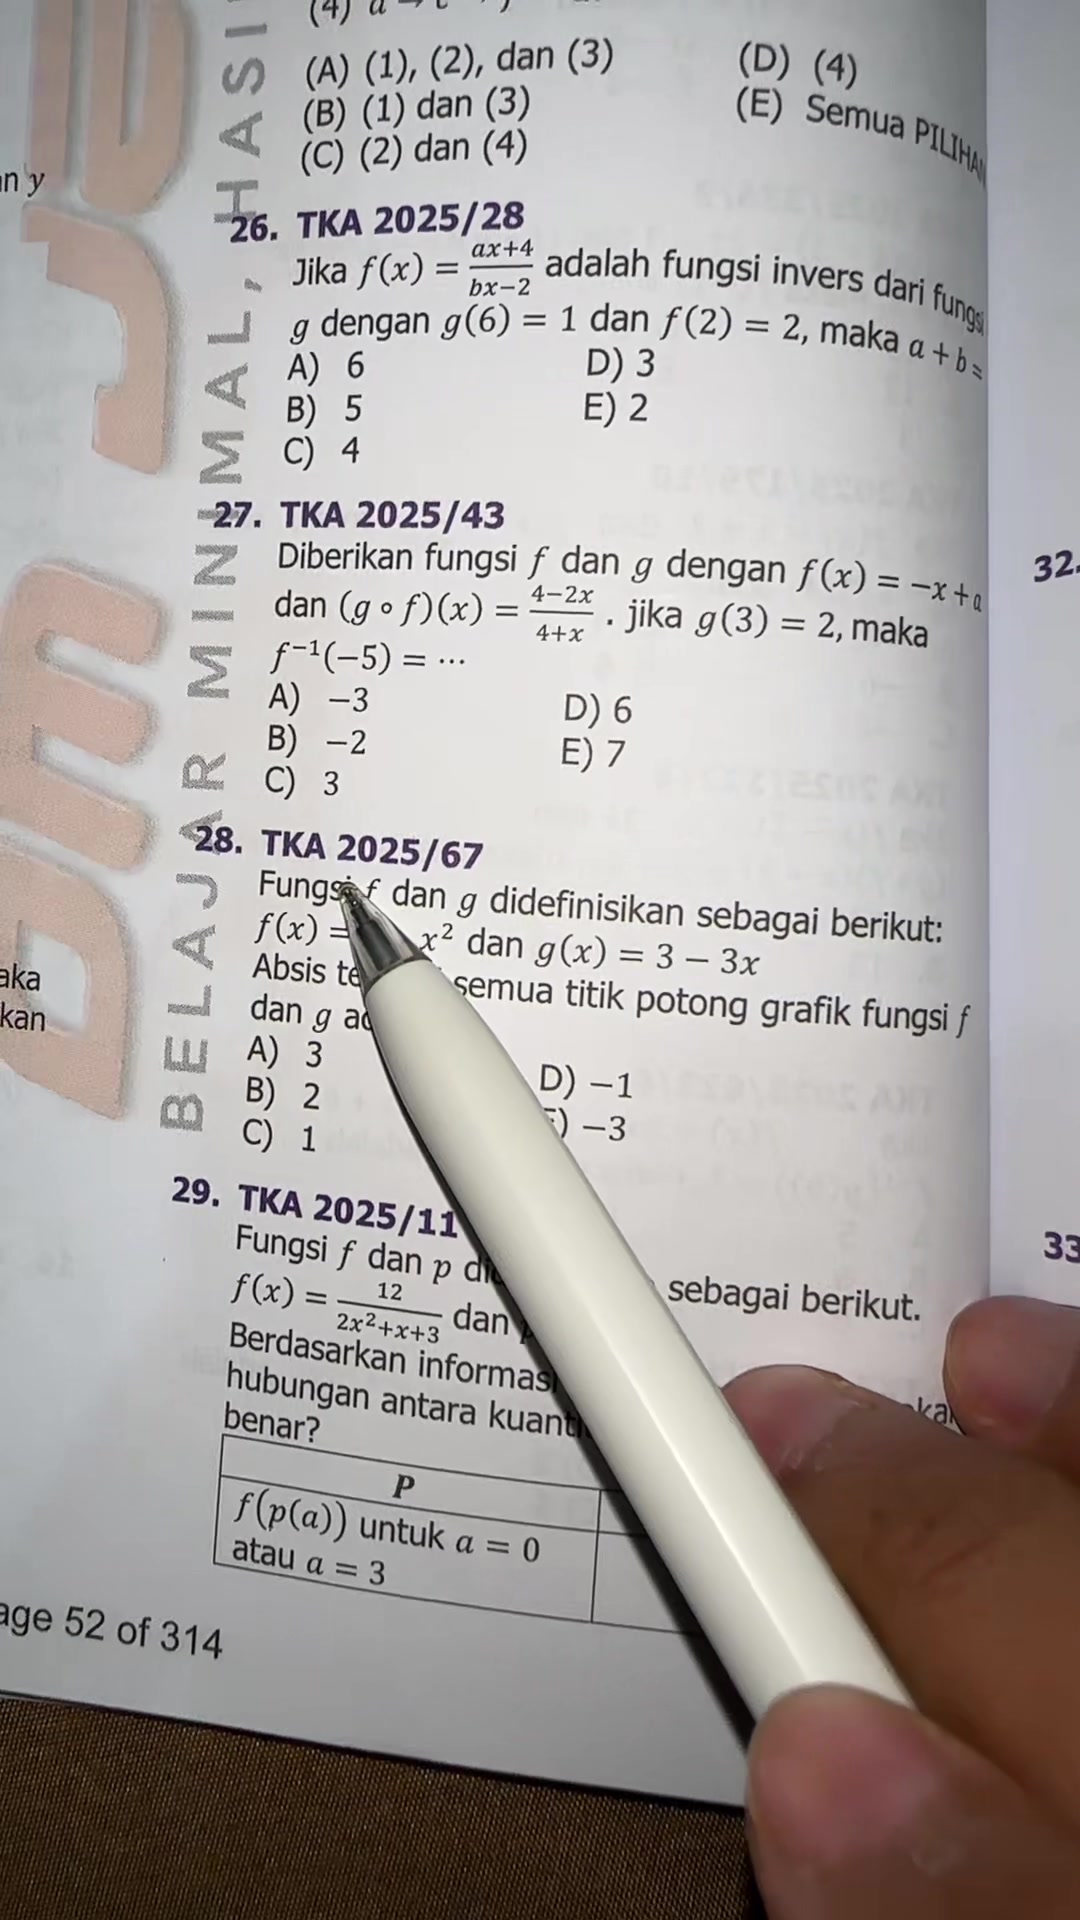 (A) (1), (2), dan (3)
(B) (1) dan (3)
(C) (2) dan (4)
(D) (4)
(E) Semua PILIHAN
26. TKA 2025/28
Jika f(x) = \frac{ax+4}{bx-2} adalah fungsi invers dari fungsi
g dengan g(6) = 1 dan f(2) = 2, maka a + b =
A) 6
B) 5
C) 4
D) 3
E) 2
27. TKA 2025/43
Diberikan fungsi f dan g dengan f(x) = −x + a
dan (g ∘ f)(x) = \frac{4-2x}{4+x} . jika g(3) = 2, maka
f⁻¹(−5) = ⋯
A) −3
B) −2
C) 3
D) 6
E) 7
28. TKA 2025/67
Fungsi f dan g didefinisikan sebagai berikut:
f(x) = x² dan g(x) = 3 − 3x
Absis semua titik potong grafik fungsi f
dan g
A) 3
B) 2
C) 1
D) −1
−3
29. TKA 2025/11
Fungsi f dan p sebagai berikut.
f(x) = \frac{12}{2x²+x+3} dan
Berdasarkan
hubungan antara
benar?
P
f(p(a)) untuk a = 0
atau a = 3
52 of 314
BELAJAR MINIMAL, HASI
y
32.
33